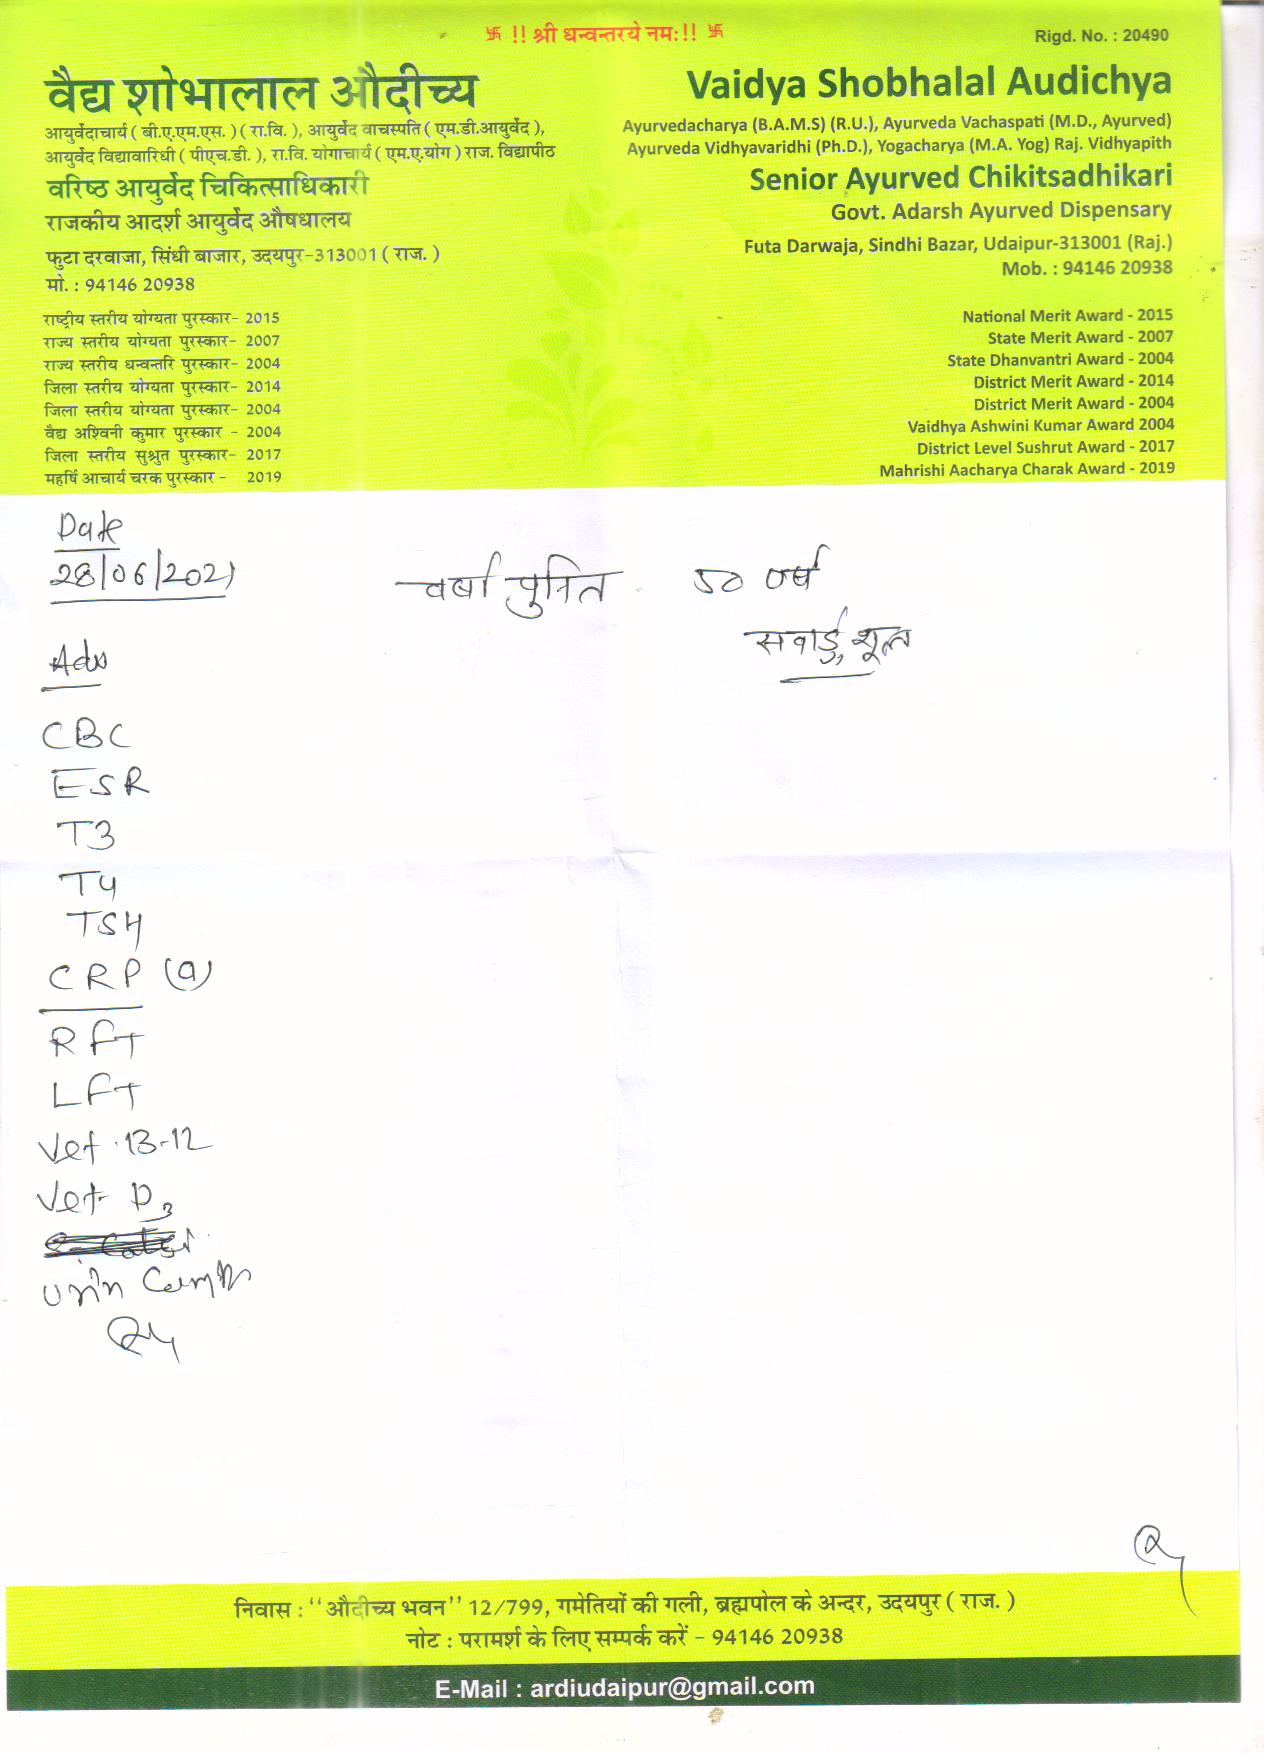 卐 !! श्री धन्वन्तरये नमः!! 卐
Rigd. No. : 20490
वैद्य शोभालाल औदीच्य
आयुर्वेदाचार्य ( बी.ए.एम.एस. ) ( रा.वि. ), आयुर्वेद वाचस्पति ( एम.डी.आयुर्वेद ),
आयुर्वेद विद्यावारिधी ( पीएच.डी. ), रा.वि. योगाचार्य ( एम.ए.योग ) राज. विद्यापीठ
वरिष्ठ आयुर्वेद चिकित्साधिकारी
राजकीय आदर्श आयुर्वेद औषधालय
फुटा दरवाजा, सिंधी बाजार, उदयपुर-313001 ( राज. )
मो. : 94146 20938
राष्ट्रीय स्तरीय योग्यता पुरस्कार- 2015
राज्य स्तरीय योग्यता पुरस्कार- 2007
राज्य स्तरीय धन्वन्तरि पुरस्कार- 2004
जिला स्तरीय योग्यता पुरस्कार- 2014
जिला स्तरीय योग्यता पुरस्कार- 2004
वैद्य अश्विनी कुमार पुरस्कार - 2004
जिला स्तरीय सुश्रुत पुरस्कार- 2017
महर्षि आचार्य चरक पुरस्कार - 2019
Vaidya Shobhalal Audichya
Ayurvedacharya (B.A.M.S) (R.U.), Ayurveda Vachaspati (M.D., Ayurved)
Ayurveda Vidhyavaridhi (Ph.D.), Yogacharya (M.A. Yog) Raj. Vidhyapith
Senior Ayurved Chikitsadhikari
Govt. Adarsh Ayurved Dispensary
Futa Darwaja, Sindhi Bazar, Udaipur-313001 (Raj.)
Mob. : 94146 20938
National Merit Award - 2015
State Merit Award - 2007
State Dhanvantri Award - 2004
District Merit Award - 2014
District Merit Award - 2004
Vaidhya Ashwini Kumar Award 2004
District Level Sushrut Award - 2017
Mahrishi Aacharya Charak Award - 2019
Date
28/06/2021
वर्षा पुनित ५० वर्ष
शूल
Adv
CBC
ESR
T3
T4
TSH
CRP (Q)
RFT
LFT
Vet B-12
Vet D3
निवास : ‘‘औदीच्य भवन’’ 12/799, गमेतियों की गली, ब्रह्मपोल के अन्दर, उदयपुर ( राज. )
नोट : परामर्श के लिए सम्पर्क करें - 94146 20938
E-Mail : ardiudaipur@gmail.com